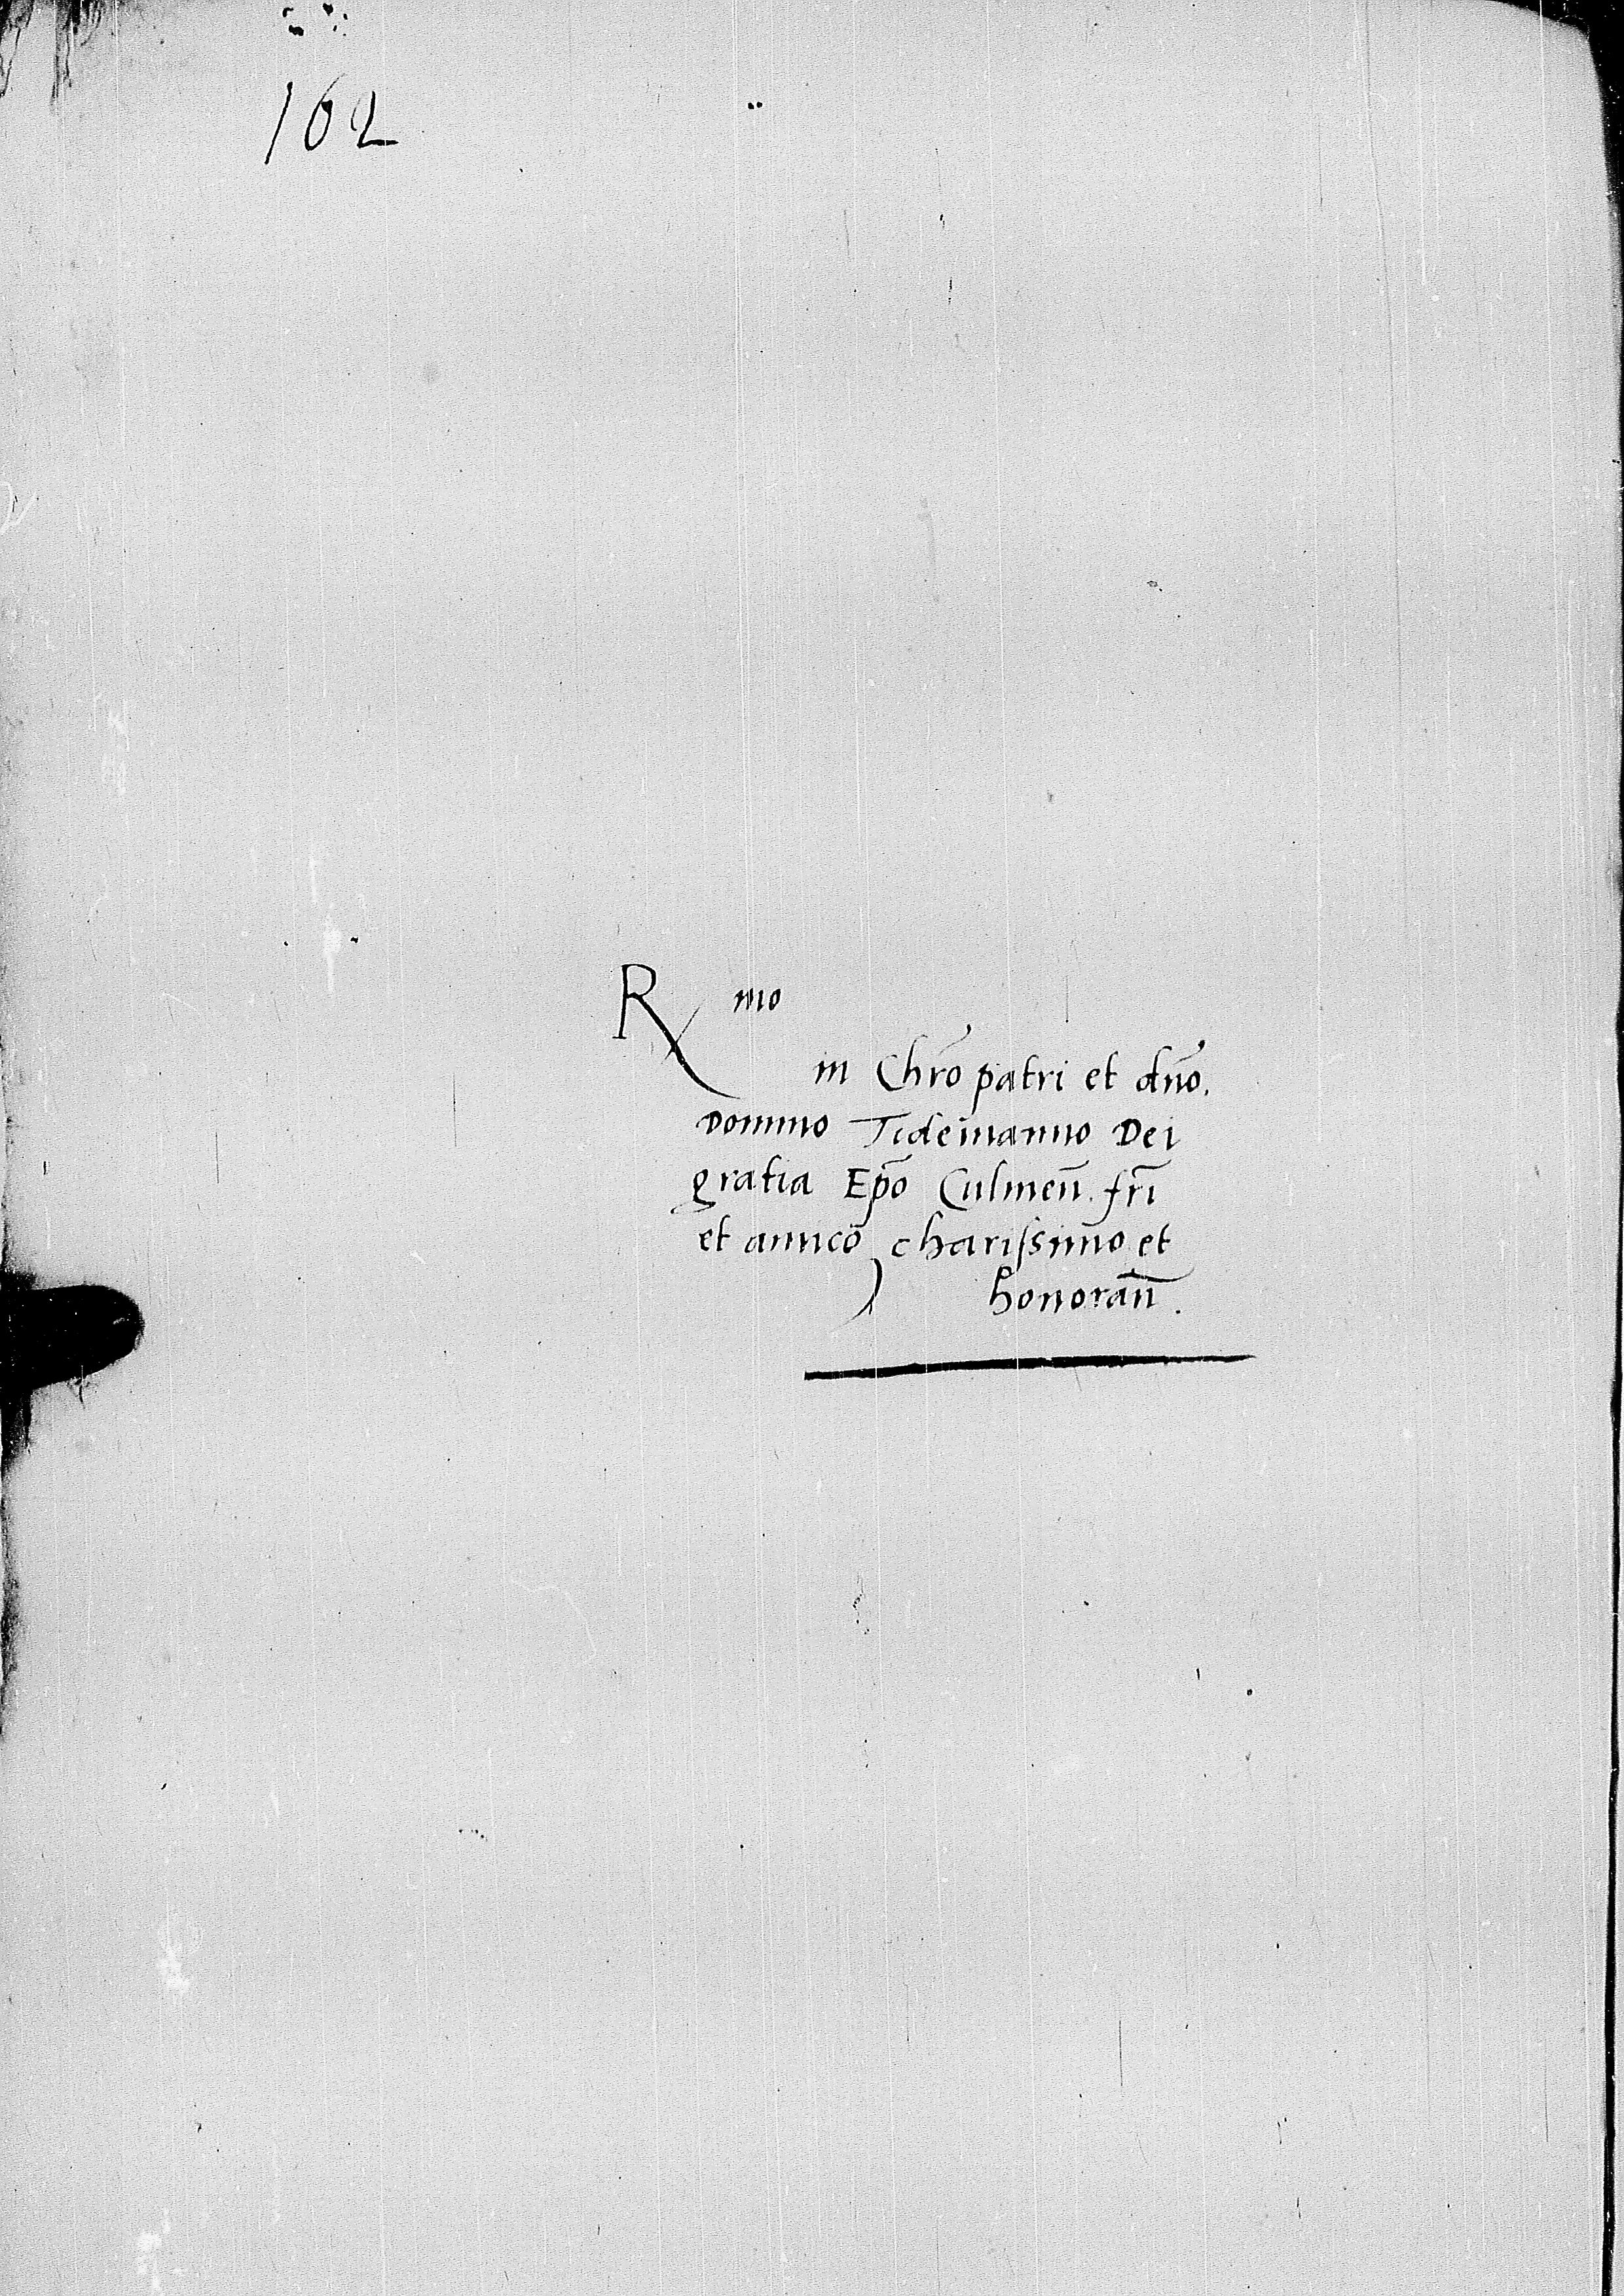 162
Rmo
in Chro patri et dno.
Domino Tidemanno Dei
gratia Epo Culmen. fri
et amico charissimo et
honoran.